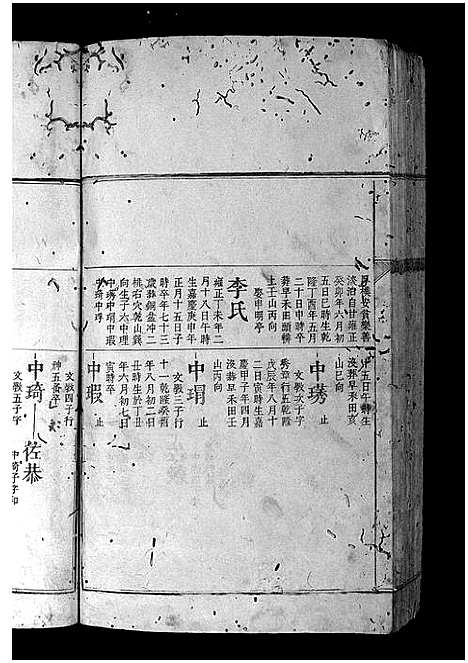 淡泊自甘雍正
癸卯年六月初
五日巳時生乾
隆丁酉年五月
二十日申時卒
葬早禾田頭輯
土壬山丙向
娶申明亭
李氏
雍正丁未年二
月十八日午時
生嘉慶庚申年
正月十五日子
時卒年七十三
歲葬銅盆冲二
桃右穴乾山巽
向生子六中理
中琇中珇中瑕
中琦中琤
五日午時生
沒葬早禾田亥
山巳向
中琇 止
文敎次子字
秀章行五乾隆
戊辰年八月十
二日寅時生嘉
慶甲子年四月
沒葬禾田壬
山丙向
中珇 止
文敎三子行
十一乾隆癸酉
年八月初二日
丑時生於丁丑
年六月初七日
寅時卒
中瑕 止
文敎四子行
中琦 佐恭
文敎五子字
中琦子字印